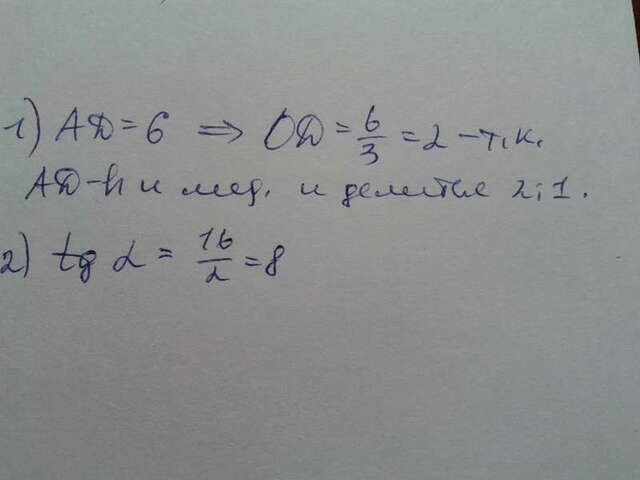 1) АД = 6 ⇒ ОД = 6/3 = 2 – т.к.
АД – h и мед. и делится 2:1.
2) tg α = 16/2 = 8